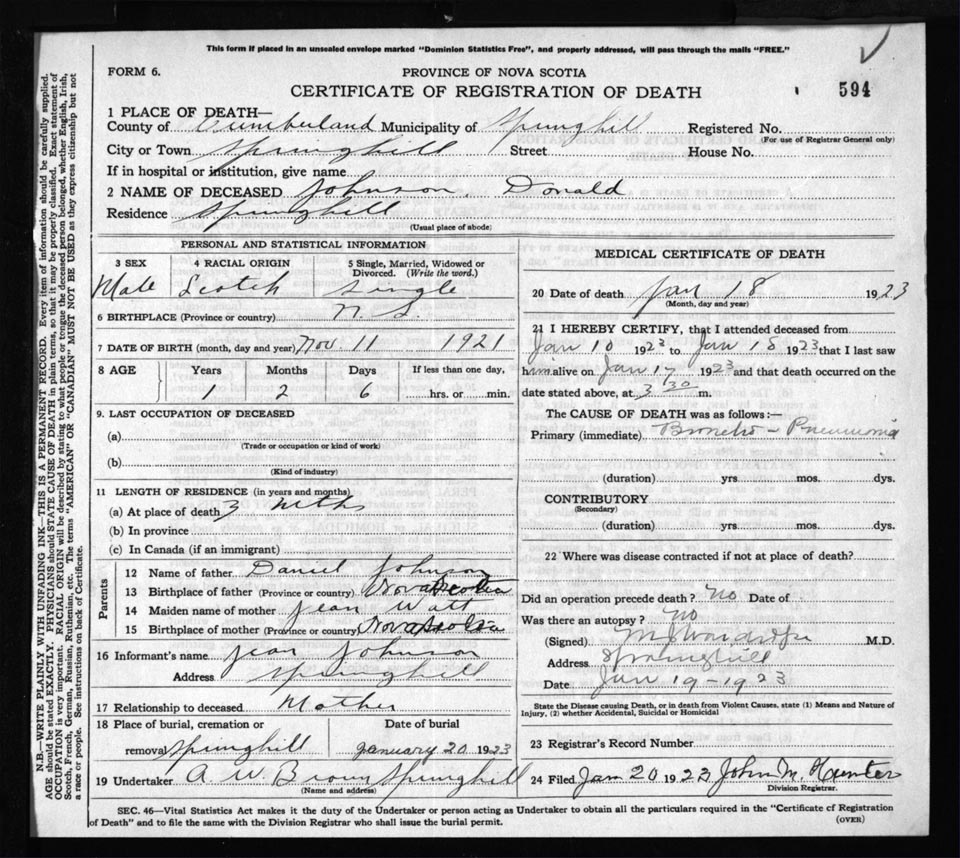 This form if placed in an unsealed envelope marked "Dominion Statistics Free", and properly addressed, will pass through the mails "FREE."
FORM 6.
PROVINCE OF NOVA SCOTIA
CERTIFICATE OF REGISTRATION OF DEATH
594
1 PLACE OF DEATH—
County of Cumberland Municipality of Springhill Registered No.
(For use of Registrar General only)
City or Town Springhill Street House No.
If in hospital or institution, give name
2 NAME OF DECEASED Johnson Donald
Residence Springhill
(Usual place of abode)
PERSONAL AND STATISTICAL INFORMATION
3 SEX 4 RACIAL ORIGIN 5 Single, Married, Widowed or Divorced. (Write the word.)
Male Scotch Single
6 BIRTHPLACE (Province or country) N. S.
7 DATE OF BIRTH (month, day and year) Nov. 11 1921
8 AGE Years Months Days If less than one day,
1 2 6 hrs. or min.
9. LAST OCCUPATION OF DECEASED
(a)
(Trade or occupation or kind of work)
(b)
(Kind of industry)
11 LENGTH OF RESIDENCE (in years and months)
(a) At place of death 3 mths
(b) In province
(c) In Canada (if an immigrant)
Parents
12 Name of father Daniel Johnson
13 Birthplace of father (Province or country) Nova Scotia
14 Maiden name of mother Jean Watt
15 Birthplace of mother (Province or country) Nova Scotia
16 Informant's name Jean Johnson
Address Springhill
17 Relationship to deceased Mother
18 Place of burial, cremation or removal Springhill
Date of burial January 20 1923
19 Undertaker A. W. Brown Springhill
(Name and address)
MEDICAL CERTIFICATE OF DEATH
20 Date of death Jan 18 1923
(Month, day and year)
21 I HEREBY CERTIFY, that I attended deceased from
Jan 10 1923 to Jan 18 1923 that I last saw
him alive on Jan 17 1923 and that death occurred on the
date stated above, at 3 30 m.
The CAUSE OF DEATH was as follows:—
Primary (immediate) Broncho - Pneumonia
(duration) yrs. mos. dys.
CONTRIBUTORY
(Secondary)
(duration) yrs. mos. dys.
22 Where was disease contracted if not at place of death?
Did an operation precede death? No Date of
Was there an autopsy? No
(Signed) M.D.
Address Springhill
Date Jan 19-1923
State the Disease causing Death, or in death from Violent Causes, state (1) Means and Nature of
Injury, (2) whether Accidental, Suicidal or Homicidal
23 Registrar's Record Number
24 Filed Jan 20 1923 John M. Hunter
Division Registrar.
SEC. 46—Vital Statistics Act makes it the duty of the Undertaker or person acting as Undertaker to obtain all the particulars required in the "Certificate of Registration
of Death" and to file the same with the Division Registrar who shall issue the burial permit.
(OVER)
N.B.—WRITE PLAINLY WITH UNFADING INK—THIS IS A PERMANENT RECORD. Every item of information should be carefully supplied.
AGE should be stated EXACTLY. PHYSICIANS should STATE CAUSE OF DEATH in plain terms, so that it may be properly classified. Exact statement of
OCCUPATION is very important. RACIAL ORIGIN will be described by stating to what people or tongue the deceased person belonged, whether English, Irish,
Scotch, French, German, Russian, Ruthenian, etc. The terms "AMERICAN" OR "CANADIAN" MUST NOT BE USED as they express citizenship but not
a race or people. See instructions on back of Certificate.